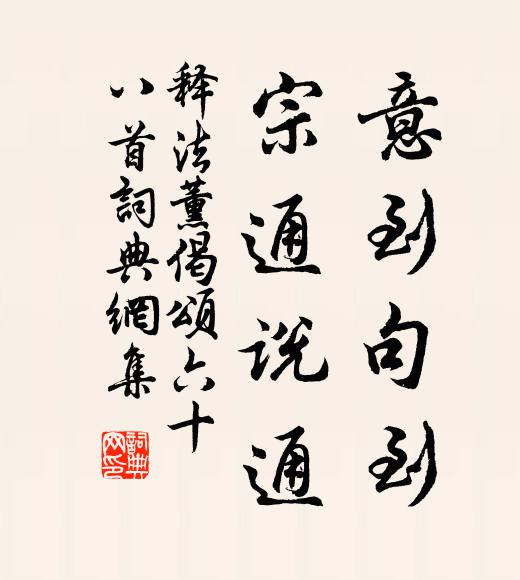 意到句到
宗通说通
释法薰偈頌六十
八首詞典網集
詞典网印